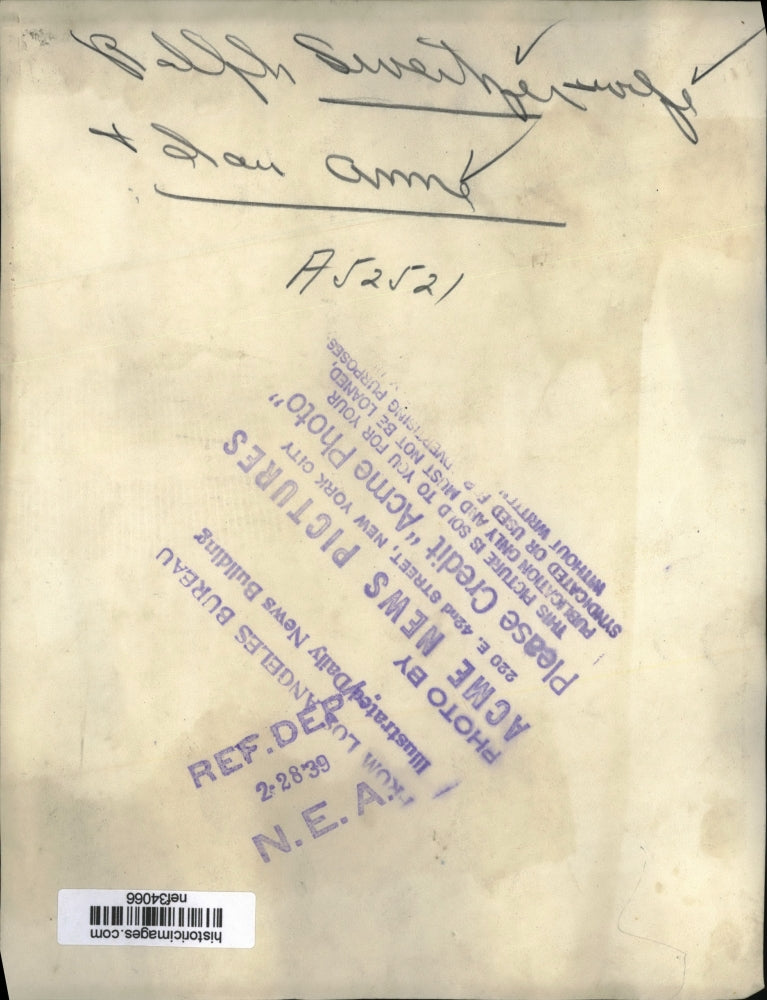 Ralph Sweitzer - wife
+ Jean Anne
A52521
PHOTO BY
ACME NEWS PICTURES
220 E. 42nd STREET, NEW YORK CITY
Please Credit "Acme Photo"
THIS PICTURE IS SOLD TO YOU FOR YOUR
PUBLICATION ONLY AND MUST NOT BE LOANED,
SYNDICATED OR USED ADVERTISING PURPOSES
WITHOUT WRITTEN
FROM LOS ANGELES BUREAU
Illustrated Daily News Building
REF. DEP
2-28'39
N.E.A.
historicimages.com
nef34066